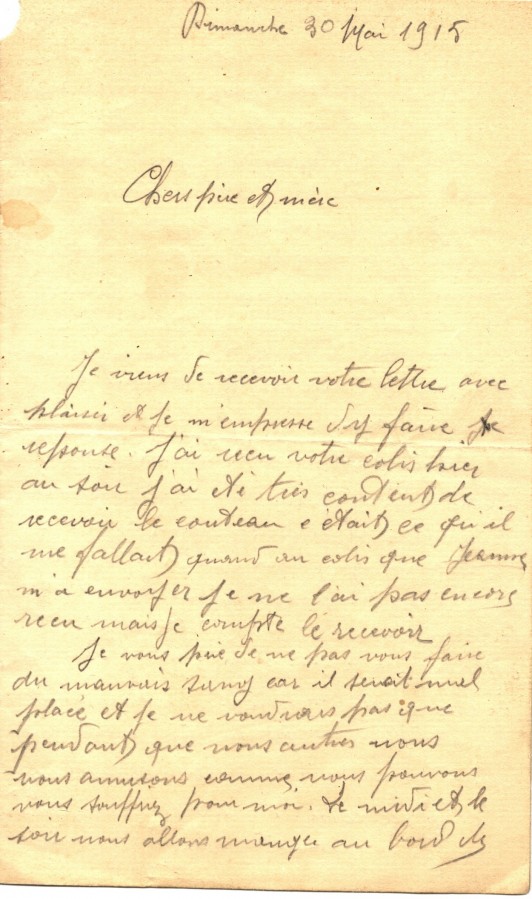 Dimanche 30 Mai 1915
Chers père et mère
Je viens de recevoir votre lettre avec
plaisir et je m'empresse d'y faire
reponse. J'ai recu votre colis hier
au soir j'ai été très content de
recevoir le couteau c'était ce qu'il
me fallait quand au colis que Jeanne
m'a envoyer je ne l'ai pas encore
recu mais je compte le recevoir
Je vous prie de ne pas vous faire
du mauvais sang car il serait mal
placé et je ne voudrais pas que
pendant que nous autres nous
nous amusons comme nous pouvons
vous souffriez pour moi. Le midi et le
soir nous allons manger au bord de